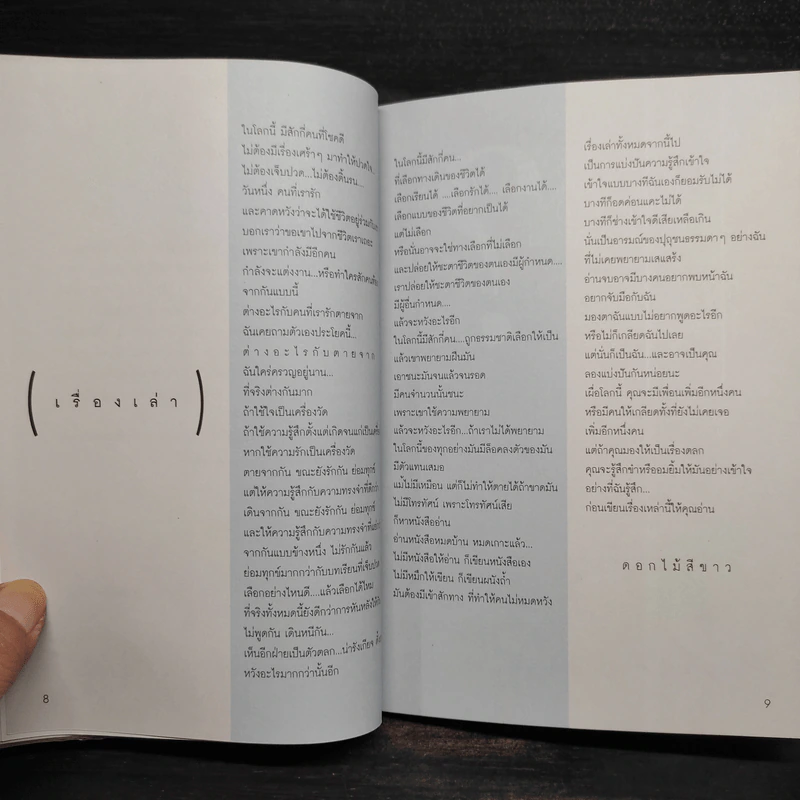 ( เรื่องเล่า )
ในโลกนี้ มีสักกี่คนที่โชคดี
ไม่ต้องมีเรื่องเศร้าๆ มาทำให้ปวดใจ...
ไม่ต้องเจ็บปวด...ไม่ต้องดิ้นรน...
วันหนึ่ง คนที่เรารัก
และคาดหวังว่าจะได้ใช้ชีวิตอยู่ร่วมกัน
บอกเราว่าขอเขาไปจากชีวิตเราเถอะ
เพราะเขากำลังมีอีกคน
กำลังจะแต่งงาน...หรือทำใครสักคน
จากกันแบบนี้
ต่างอะไรกับคนที่เรารักตายจาก
ฉันเคยถามตัวเองประโยคนี้...
ต่างอะไรกับตายจาก
ฉันใคร่ครวญอยู่นาน...
ที่จริงต่างกันมาก
ถ้าใช้ใจเป็นเครื่องวัด
ถ้าใช้ความรู้สึกตั้งแต่เกิดจนแก่เป็น
หากใช้ความรักเป็นเครื่องวัด
ตายจากกัน ขณะยังรักกัน ย่อมทุกข์
แต่ให้ความรู้สึกกับความทรงจำที่ดี
เดินจากกัน ขณะยังรักกัน ย่อมทุกข์
และให้ความรู้สึกกับความทรงจำที่
จากกันแบบข้างหนึ่ง ไม่รักกันแล้ว
ย่อมทุกข์มากกว่ากับบทเรียนที่เจ็บปวด
เลือกอย่างไหนดี....แล้วเลือกได้ไหม
ที่จริงทั้งหมดนี้ยังดีกว่าการหันหลังให้
ไม่พูดกัน เดินหนีกัน...
เห็นอีกฝ่ายเป็นตัวตลก...น่ารังเกียจ
หวังอะไรมากกว่านั้นอีก
8
ในโลกนี้มีสักกี่คน...
ที่เลือกทางเดินของชีวิตได้
เลือกเรียนได้ ...เลือกรักได้.... เลือกงานได้....
เลือกแบบของชีวิตที่อยากเป็นได้
แต่ไม่เลือก
หรือนั่นอาจจะใช่ทางเลือกที่ไม่เลือก
และปล่อยให้ชะตาชีวิตของตนเองมีผู้กำหนด....
เราปล่อยให้ชะตาชีวิตของตนเอง
มีผู้อื่นกำหนด....
แล้วจะหวังอะไรอีก
ในโลกนี้มีสักกี่คน....ถูกธรรมชาติเลือกให้เป็น
แล้วเขาพยายามฝืนมัน
เอาชนะมันจนแล้วจนรอด
มีคนจำนวนนั้นชนะ
เพราะเขาใช้ความพยายาม
แล้วจะหวังอะไรอีก...ถ้าเราไม่ได้พยายาม
ในโลกของทุกอย่างมันมีล็อคลงตัวของมัน
มีตัวแทนเสมอ
แม้ไม่มีเหมือน แต่ก็ไม่ทำให้ตายได้ถ้าขาดมัน
ไม่มีโทรทัศน์ เพราะโทรทัศน์เสีย
ก็หาหนังสืออ่าน
อ่านหนังสือหมดบ้าน หมดเกาะแล้ว...
ไม่มีหนังสือให้อ่าน ก็เขียนหนังสือเอง
ไม่มีหมึกให้เขียน ก็เขียนผนังถ้ำ
มันต้องมีเข้าสักทาง ที่ทำให้คนไม่หมดหวัง
เรื่องเล่าทั้งหมดจากนี้ไป
เป็นการแบ่งปันความรู้สึกเข้าใจ
เข้าใจแบบบางทีฉันเองก็ยอมรับไม่ได้
บางทีก็อดค่อนแคะไม่ได้
บางทีก็ช่างเข้าใจดีเสียเหลือเกิน
นั่นเป็นอารมณ์ของปุถุชนธรรมดาๆ อย่างฉัน
ที่ไม่เคยพยายามเสแสร้ง
อ่านจบอาจมีบางคนอยากพบหน้าฉัน
อยากจับมือกับฉัน
มองตาฉันแบบไม่อยากพูดอะไรอีก
หรือไม่ก็เกลียดฉันไปเลย
แต่นั่นก็เป็นฉัน...และอาจเป็นคุณ
ลองแบ่งปันกันหน่อยนะ
เผื่อโลกนี้ คุณจะมีเพื่อนเพิ่มอีกหนึ่งคน
หรือมีคนให้เกลียดทั้งที่ยังไม่เคยเจอ
เพิ่มอีกหนึ่งคน
แต่ถ้าคุณมองให้เป็นเรื่องตลก
คุณจะรู้สึกขำหรืออมยิ้มให้มันอย่างเข้าใจ
อย่างที่ฉันรู้สึก...
ก่อนเขียนเรื่องเหล่านี้ให้คุณอ่าน
ดอกไม้สีขาว
9